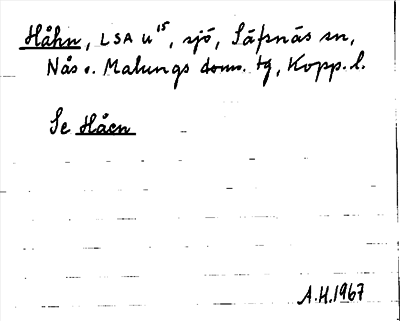 Håhn, LSA u¹⁵, sjö, Säfsnäs sn,
Nås o. Malungs doms. tg, Kopp. l.
Se Håen
A.H.1967